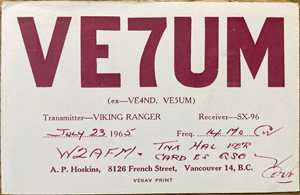 VE7UM
(ex—VE4ND, VE5UM)
Transmitter—VIKING RANGER Receiver—SX-96
July 23 1965 Freq. 14 Mc CW
W2AFM. TNX HAL PER
CARD ES QSO
A. P. Hoskins, 8126 French Street, Vancouver 14, B.C.
VEGAV PRINT